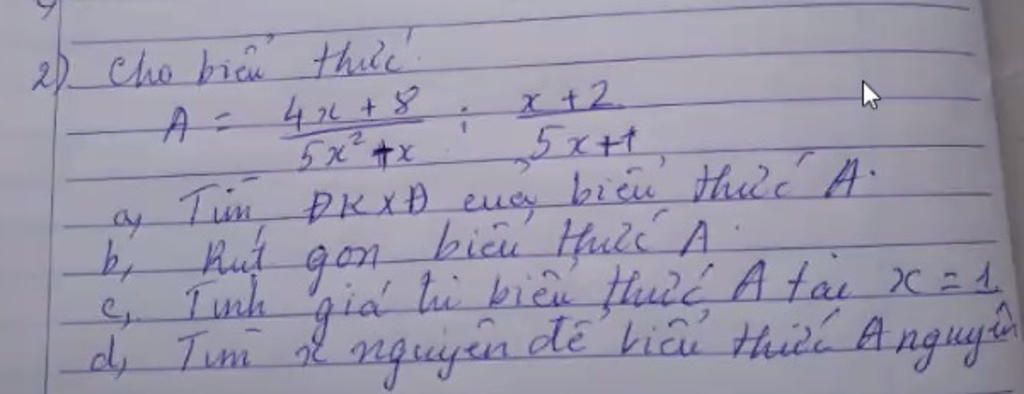 2) Cho biểu thức:
A = (4x + 8)/(5x² + x) : (x + 2)/(5x + 1)
a, Tìm ĐKXĐ của biểu thức A.
b, Rút gọn biểu thức A.
c, Tính giá trị biểu thức A tại x = 1
d, Tìm x nguyên để biểu thức A nguyên